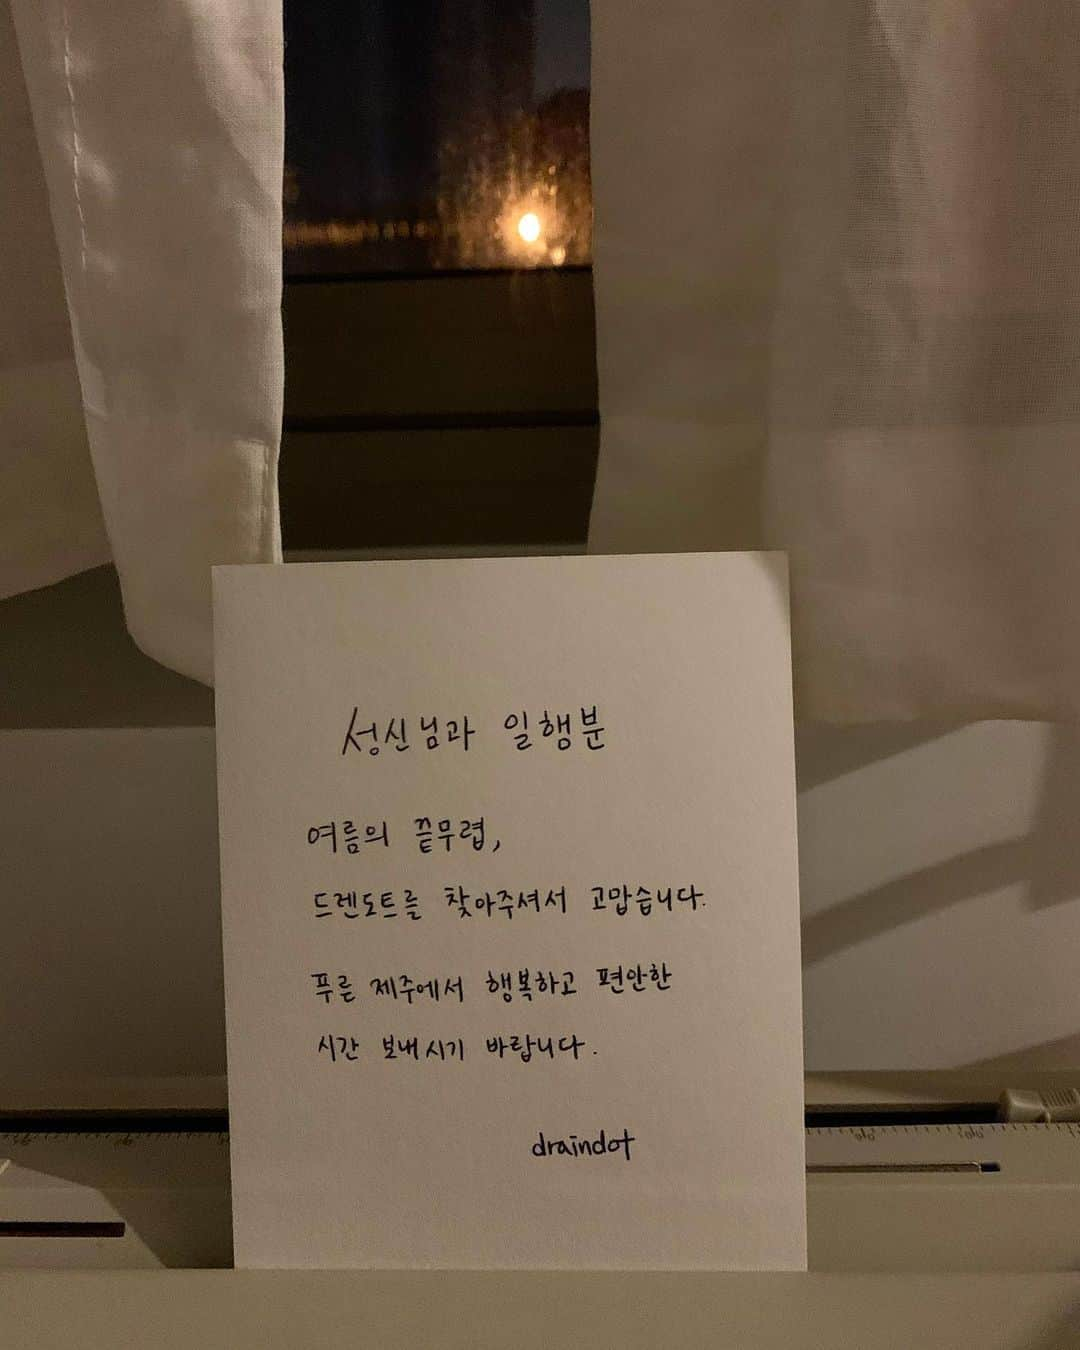 성신님과 일행분
여름의 끝무렵,
드렌도트를 찾아주셔서 고맙습니다.
푸른 제주에서 행복하고 편안한
시간 보내시기 바랍니다.
draindot